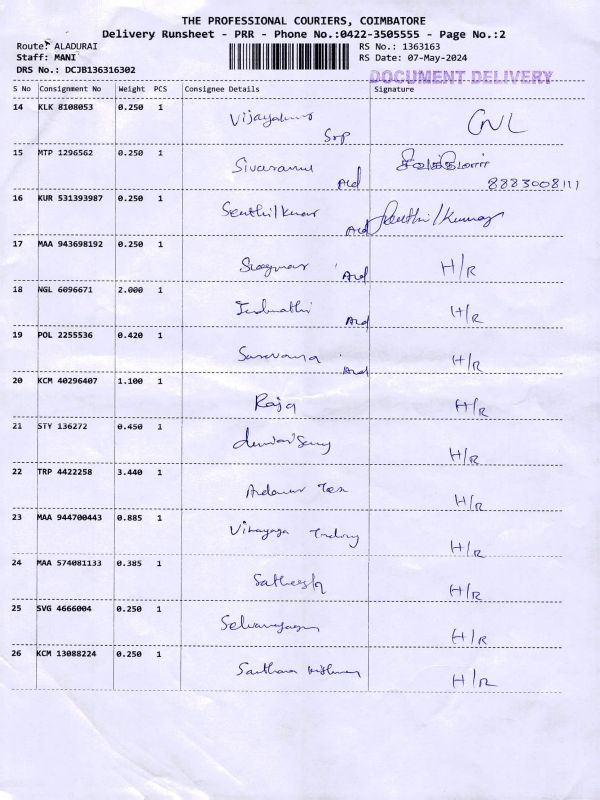 THE PROFESSIONAL COURIERS, COIMBATORE
Delivery Runsheet - PRR - Phone No.:0422-3505555 - Page No.:2
Route: ALADURAI
RS No.: 1363163
Staff: MANI
RS Date: 07-May-2024
DRS No.: DCJB136316302
DOCUMENT DELIVERY
S No Consignment No Weight PCS Consignee Details Signature
14 KLK 8108053 0.250 1
15 MTP 1296562 0.250 1 8883008111
16 KUR 531393987 0.250 1 Senthilkumar Senthilkumar
17 MAA 943698192 0.250 1 H/R
18 NGL 6096671 2.000 1 H/R
19 POL 2255536 0.420 1 Saravana H/R
20 KCM 40296407 1.100 1 Raja H/R
21 STY 136272 0.450 1 H/R
22 TRP 4422258 3.440 1 H/R
23 MAA 944700443 0.885 1 Vinayaga H/R
24 MAA 574081133 0.385 1 H/R
25 SVG 4666004 0.250 1 H/R
26 KCM 13088224 0.250 1 H/R